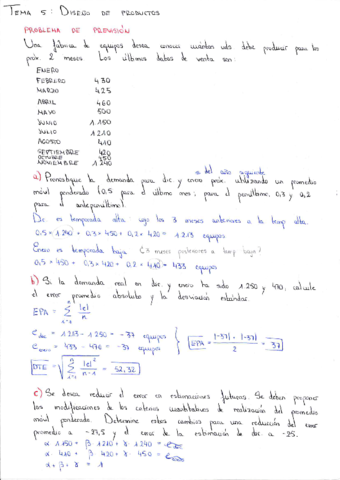 TEMA 5: DISEÑO DE PRODUCTOS
PROBLEMA DE PREVISIÓN
Una fábrica de equipos desea conocer cuántas uds debe producir para los
próx. 2 meses. Los últimos datos de venta son:
ENERO
FEBRERO 430
MARZO 425
ABRIL 460
MAYO 500
JUNIO 1150
JULIO 1210
AGOSTO 410
SEPTIEMBRE 420
OCTUBRE 450
NOVIEMBRE 1240
del año siguiente
a) Pronostique la demanda para dic y enero próx. utilizando un promedio
móvil ponderado (0,5 para el último mes; para el penúltimo 0,3 y 0,2
para el antepenúltimo)
Dic es temporada alta: cojo los 3 meses anteriores a la temp alta.
0,5 × 1240 + 0,3 × 450 + 0,2 × 420 = 1213 equipos
Enero es temporada baja
0,5 × 450 + 0,3 × 420 + 0,2 × 410 = 433 equipos
b) Si la demanda real en dic. y enero ha sido 1250 y 470, calcule
el error promedio absoluto y la desviación estándar.
EPA = Σ |e| / n
e dic = 1213 - 1250 = -37 equipos
e enero = 433 - 470 = -37 equipos
EPA = |-37| + |-37| / 2 = 37
DTE = √ Σ |e|² / n-1 = 52,32
c) Se desea reducir el error en estimaciones futuras. Se deben proponer
las modificaciones de los criterios cuantitativos de realización del promedio
móvil ponderado. Determine estos cambios para una reducción del error
promedio a -27,5 y el error de la estimación de dic a -25.
α 1150 + β 1210 + γ 1240 =
α 410 + β 420 + γ 450 =
α + β + γ = 1